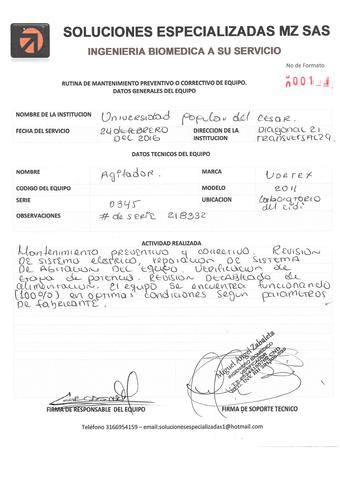 SOLUCIONES ESPECIALIZADAS MZ SAS
INGENIERIA BIOMEDICA A SU SERVICIO
No de Formato
RUTINA DE MANTENIMIENTO PREVENTIVO O CORRECTIVO DE EQUIPO.
DATOS GENERALES DEL EQUIPO
NOMBRE DE LA INSTITUCION Universidad Popular del Cesar.
FECHA DEL SERVICIO 24 de FEBRERO DEL 2016 DIRECCION DE LA INSTITUCION Diagonal 21 Transversal 29
DATOS TECNICOS DEL EQUIPO
NOMBRE Agitador. MARCA VORTEX
CODIGO DEL EQUIPO MODELO 2011
SERIE 0345 UBICACION Laboratorio del
OBSERVACIONES # de serie 218332
ACTIVIDAD REALIZADA
Mantenimiento preventivo y correctivo. REVISION
DE SISTEMA electrico, reparacion DE SISTEMA
DE AGITACION DEL EQUIPO. Verificacion de
etapa de potencia. REVISION DE CABLEADO de
alimentacion. El equipo se encuentra funcionando
(100%) en optimas condiciones segun parametros
DE fabricante.
Miguel Angel Zabaleta
FIRMA DE RESPONSABLE DEL EQUIPO FIRMA DE SOPORTE TECNICO
Teléfono 3166954159 – email:solucionesespecializadas1@hotmail.com